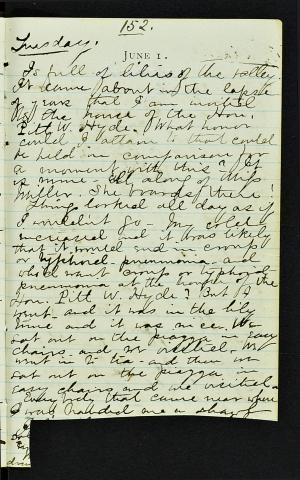 152.
Tuesday.
JUNE 1.
Is full of lilies of the valley.
It came about in the lapse
of years that I am invited
to the house of the Hon.
Pitt W. Hyde. What honor
could I attain to that could
be held in comparison for
a moment with this? It
is mine all along of Miss
Miller. She boards there!
Things looked all day as if
I wouldn't go. My cold
increased and it was likely
that it would end in croup
or typhoid pneumonia and
who'd want croup or typhoid
pneumonia at the house of the
Hon. Pitt W. Hyde? But I
went and it was in the lily
time and it was nice. We
sat out on the piazza in easy
chairs and visited. We
went in to tea and then we
sat out on the piazza in
easy chairs and visited.
Every body that came near where
I was handed me a shawl